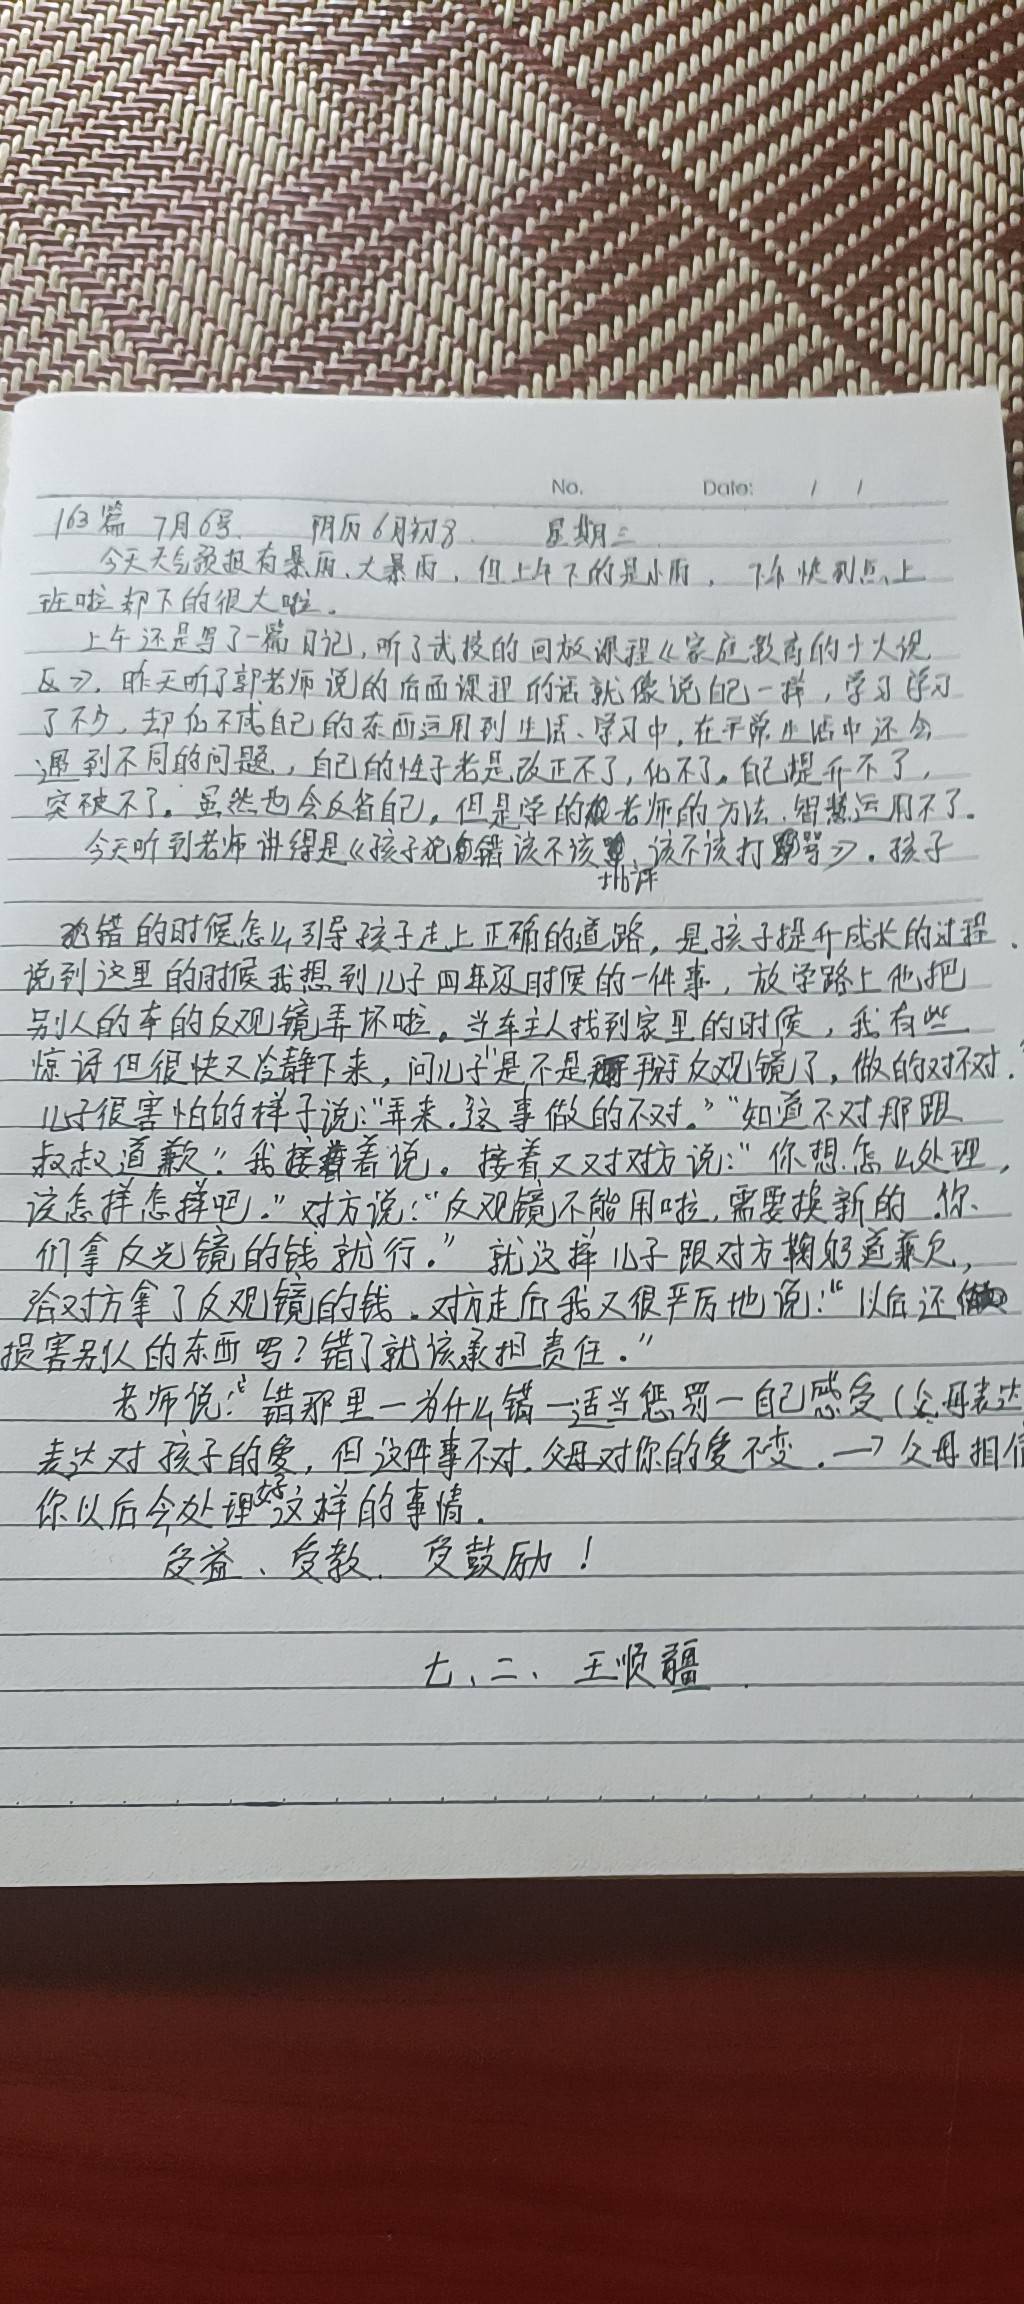 No.    Date:  /  /
163篇 7月6号. 阴历6月初8. 星期三
今天天气预报有暴雨、大暴雨，但上午下的是小雨，下午快到点上
班啦却下的很大啦。
上午还是写了一篇日记，听了武校的回放课程《家庭教育的十大误
区》，昨天听了郭老师说的后面课程的话就像说自己一样，学习学习
了不少，却化不成自己的东西运用到生活、学习中，在平常生活中还会
遇到不同的问题，自己的性子老是改正不了，化不了。自己提升不了，
突破不了。虽然也会反省自己，但是学的老师的方法、智慧运用不了。
今天听到老师讲得是《孩子犯错该不该批评、该不该打骂》。孩子
犯错的时候怎么引导孩子走上正确的道路，是孩子提升成长的过程.
说到这里的时候我想到儿子四年级时候的一件事，放学路上他把
别人的车的反观镜弄坏啦。当车主人找到家里的时候，我有些
惊讶但很快又冷静下来，问儿子"是不是掰反观镜了，做的对不对.
儿子很害怕的样子说："弄来.这事做的不对。""知道不对那跟
叔叔道歉"我接着说。接着又对对方说："你想怎么处理，
该怎样怎样吧."对方说："反观镜不能用啦，需要换新的.你
们拿反光镜的钱就行。"就这样儿子跟对方鞠躬道歉，
给对方拿了反观镜的钱.对方走后我又很严厉地说："以后还
损害别人的东西吗？错了就该承担责任."
老师说："错那里一为什么错一适当惩罚一自己感受(父母表达
表达对孩子的爱，但这件事不对.父母对你的爱不变.→父母相信
你以后会处理好这样的事情.
受益、受教、受鼓励！
七、二、王顺疆.